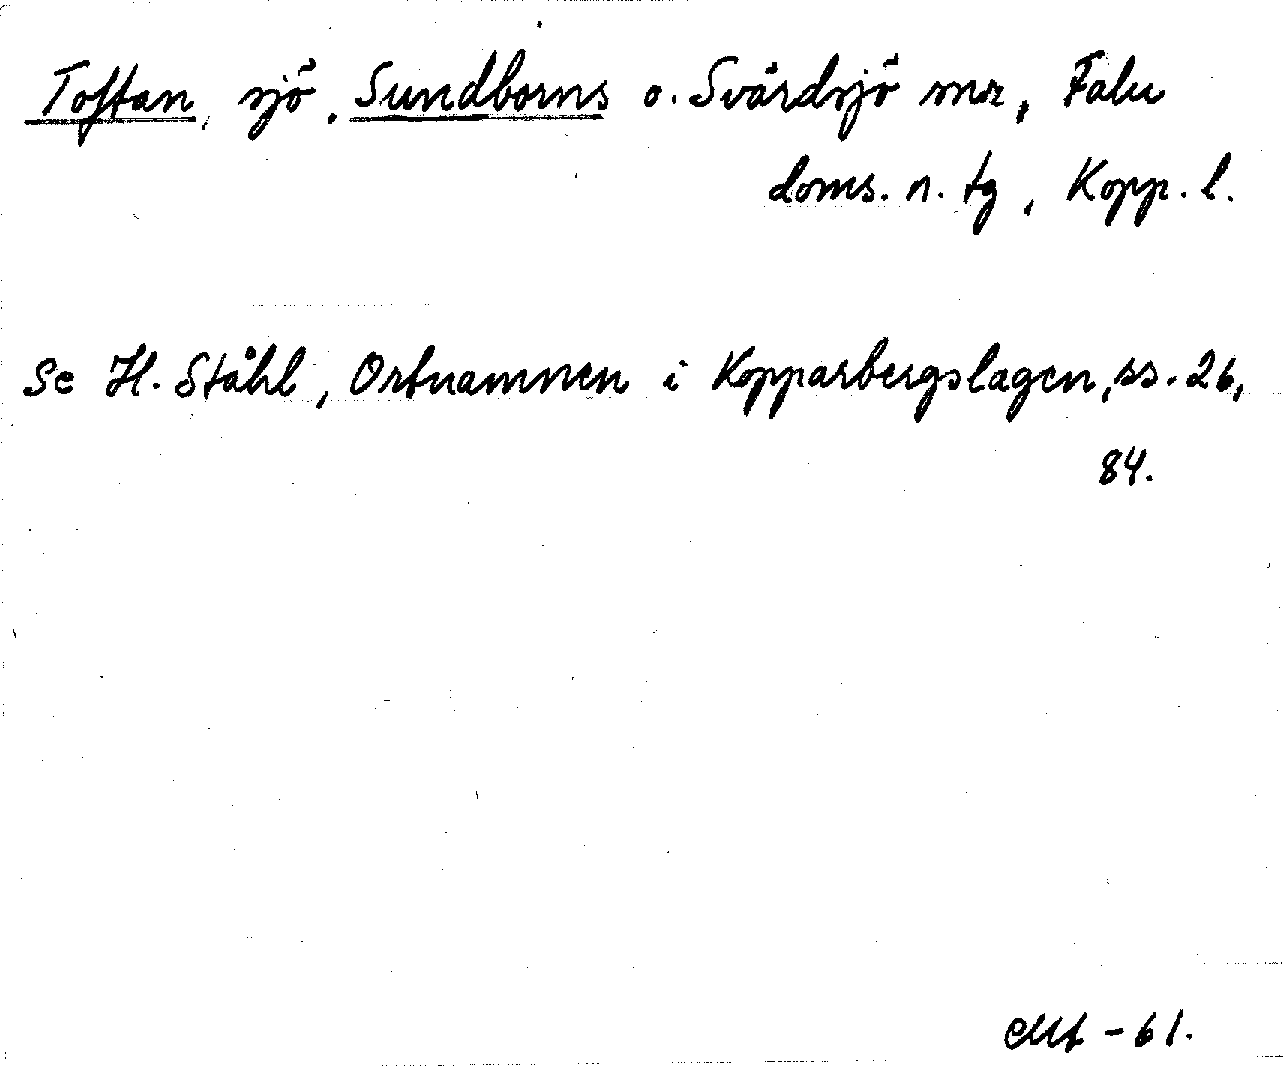 Toftan, sjö, Sundborns o. Svärdsjö snr, Falu
doms. n. tg, Kopp. l.
Se H. Ståhl, Ortnamnen i Kopparbergslagen, ss. 26,
84.
-61.